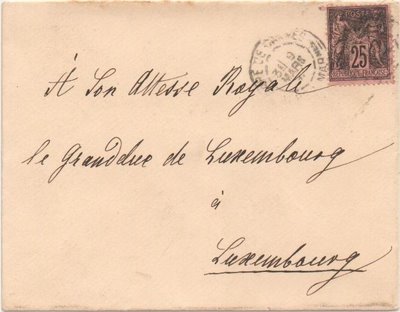 POSTE
25
REPUBLIQUE FRANÇAISE
9
MARS
À Son Altesse Royale
le Grandduc de Luxembourg
à
Luxembourg